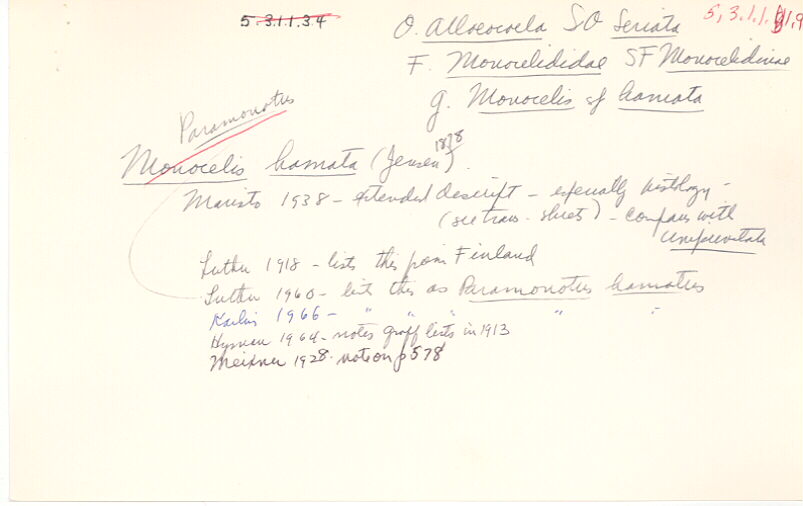 5.3.1.1.34
O. Alloeocoela SO Seriata
5,3.1.1.
F. Monocelididae SF Monocelidinae
g. Monocelis sf hamata
Paramonotus
Monocelis hamata (Jensen) 1878
Maristo 1938 - extended descript - especially histology -
(see trans. sheets) - compare with
unipunctata
Luther 1918 - lists this from Finland
Luther 1960 - lists this as Paramonotus hamatus
Karling 1966 - " " " " "
Hyman 1964 - notes Graff lists in 1913
Meixner 1928 - note on p 578